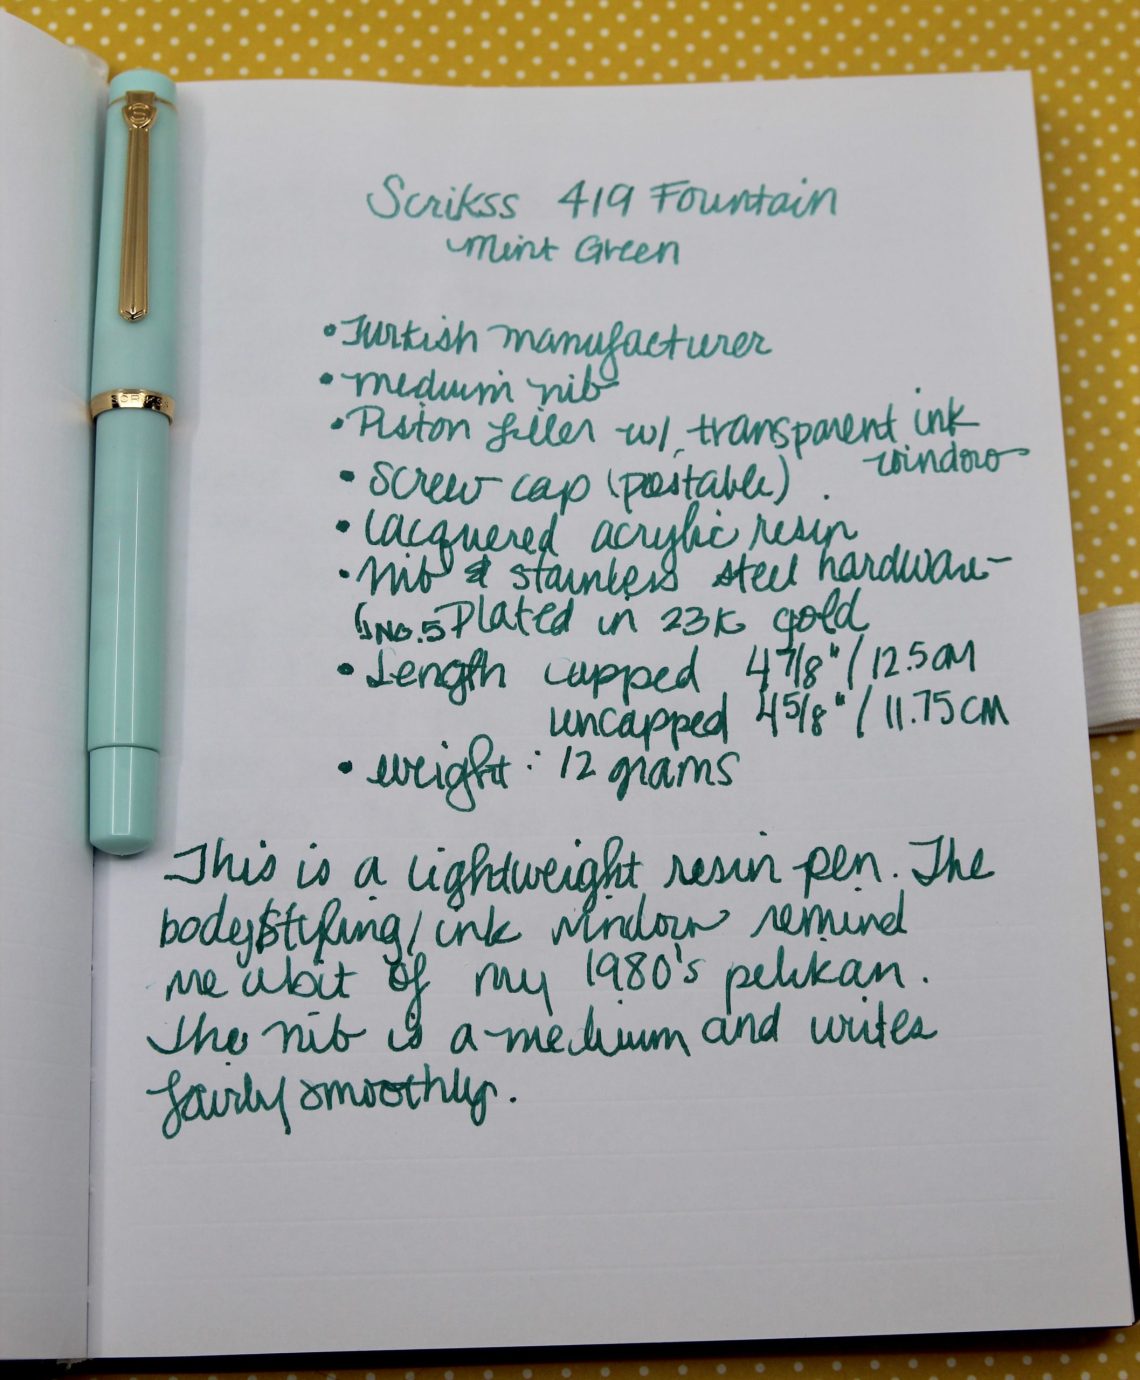 Scrikss 419 Fountain
Mint Green
• Turkish manufacturer
• medium nib
• Piston filler w/ transparent ink
window
• Screw cap (postable)
• Lacquered acrylic resin
• Nib & stainless steel hardware-
No.5 Plated in 23K gold
• Length capped 4 7/8" / 12.5 cm
uncapped 4 5/8" / 11.75 cm
• weight: 12 grams
This is a lightweight resin pen. The
body styling/ink window remind
me a bit of my 1980's pelikan.
The nib is a medium and writes
fairly smoothly.
S
SCRIKSS